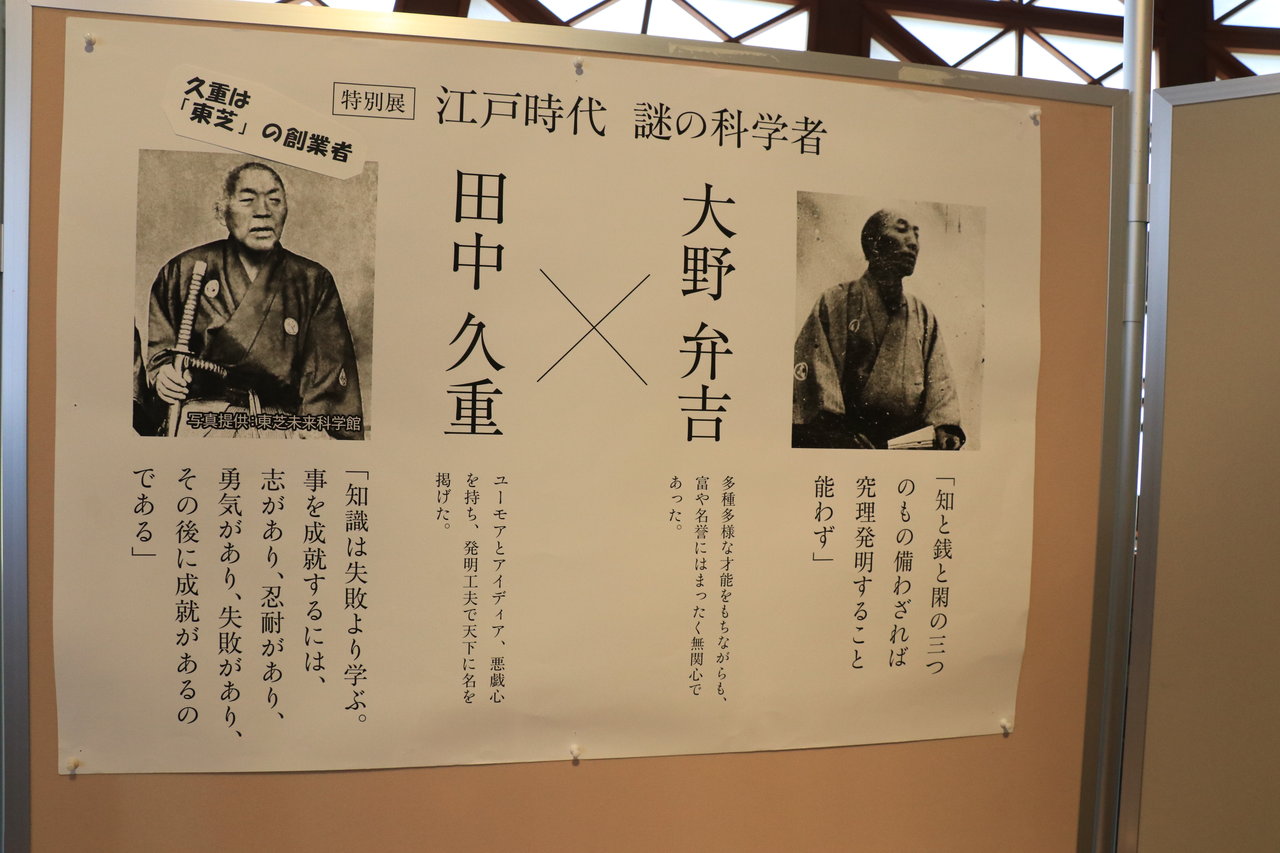 特別展 江戸時代 謎の科学者
久重は
「東芝」の創業者
大野 弁吉
田中 久重
写真提供:東芝未来科学館
「知と銭と閑の三つ
のもの備わざれば
究理発明すること
能わず」
多種多様な才能をもちながらも、
富や名誉にはまったく無関心で
あった。
ユーモアとアイディア、悪戯心
を持ち、発明工夫で天下に名を
掲げた。
「知識は失敗より学ぶ。
事を成就するには、
志があり、忍耐があり、
勇気があり、失敗があり、
その後に成就があるの
である」